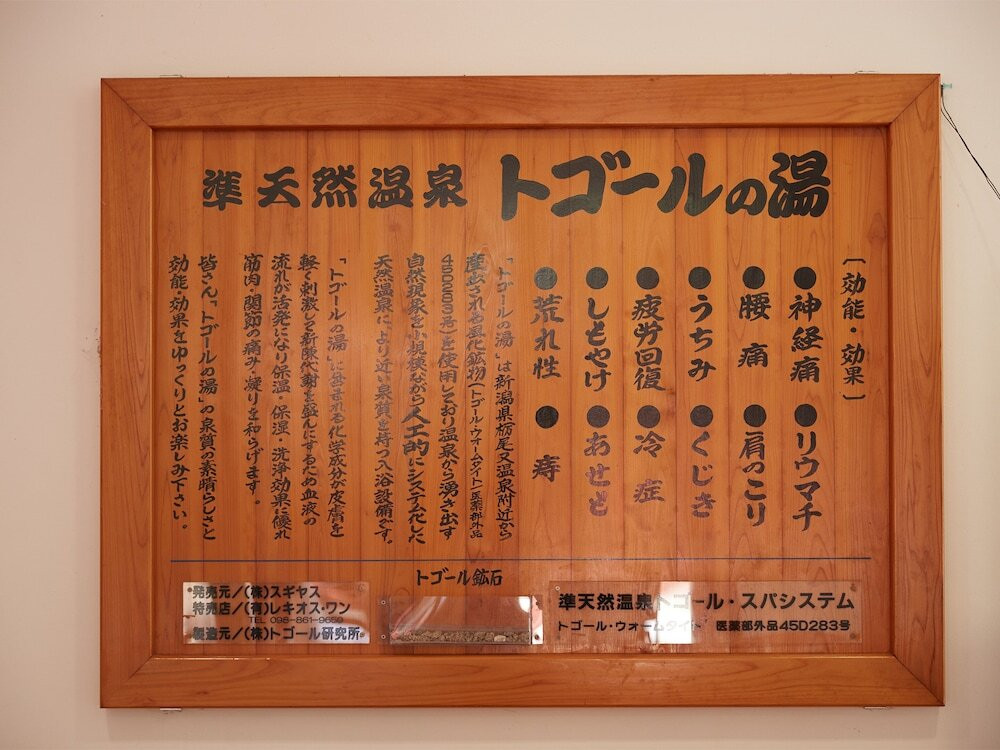 準天然温泉 トゴールの湯
〔効能・効果〕
●神経痛 ●リウマチ
●腰痛 ●肩のこり
●うちみ ●くじき
●疲労回復 ●冷症
●しもやけ ●あせも
●荒れ性 ●痔
「トゴールの湯」は新潟県栃尾又温泉附近から
産出される風化鉱物(トゴール・ウォームタイト/医薬部外品
45D283号)を使用しており温泉から湧き出す
自然現象を小規模ながら人工的にシステム化した
天然温泉により近い泉質を持つ入浴設備です。
「トゴールの湯」に含まれる化学成分が皮膚を
軽く刺激して新陳代謝を盛んにするため血液の
流れが活発になり保温・保湿・洗浄効果に優れ
筋肉・関節の痛み・凝りを和らげます。
皆さん、「トゴールの湯」の泉質の素晴らしさと
効能・効果をゆっくりとお楽しみ下さい。
トゴール鉱石
発売元/(株)スギヤス
特売店/(有)レキオス・ワン
TEL 098-861-9659
製造元/(株)トゴール研究所
準天然温泉トゴール・スパシステム
トゴール・ウォームタイト 医薬部外品45D283号